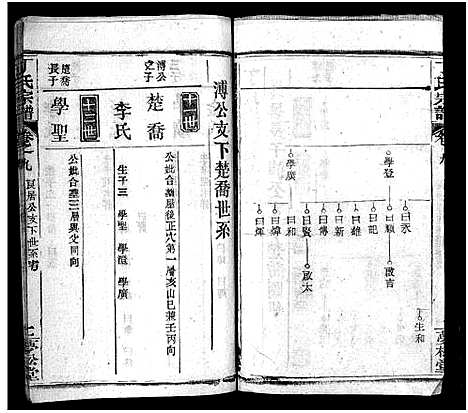 氏宗譜
卷
學登
學廣
曰永
曰順
曰記
曰新
曰雄
曰傳
曰賢
曰和
曰輝
啟吉
啟太
生和
溥公支下楚喬世系
十二世
溥公之子
楚喬
公妣合葬屋後正穴第一層亥山巳兼壬丙向
李氏
生子三 學聖 學 學廣
十三世
楚喬長子
學聖
公妣合葬三層與父同向
氏宗譜
卷之九
良居公支下世系